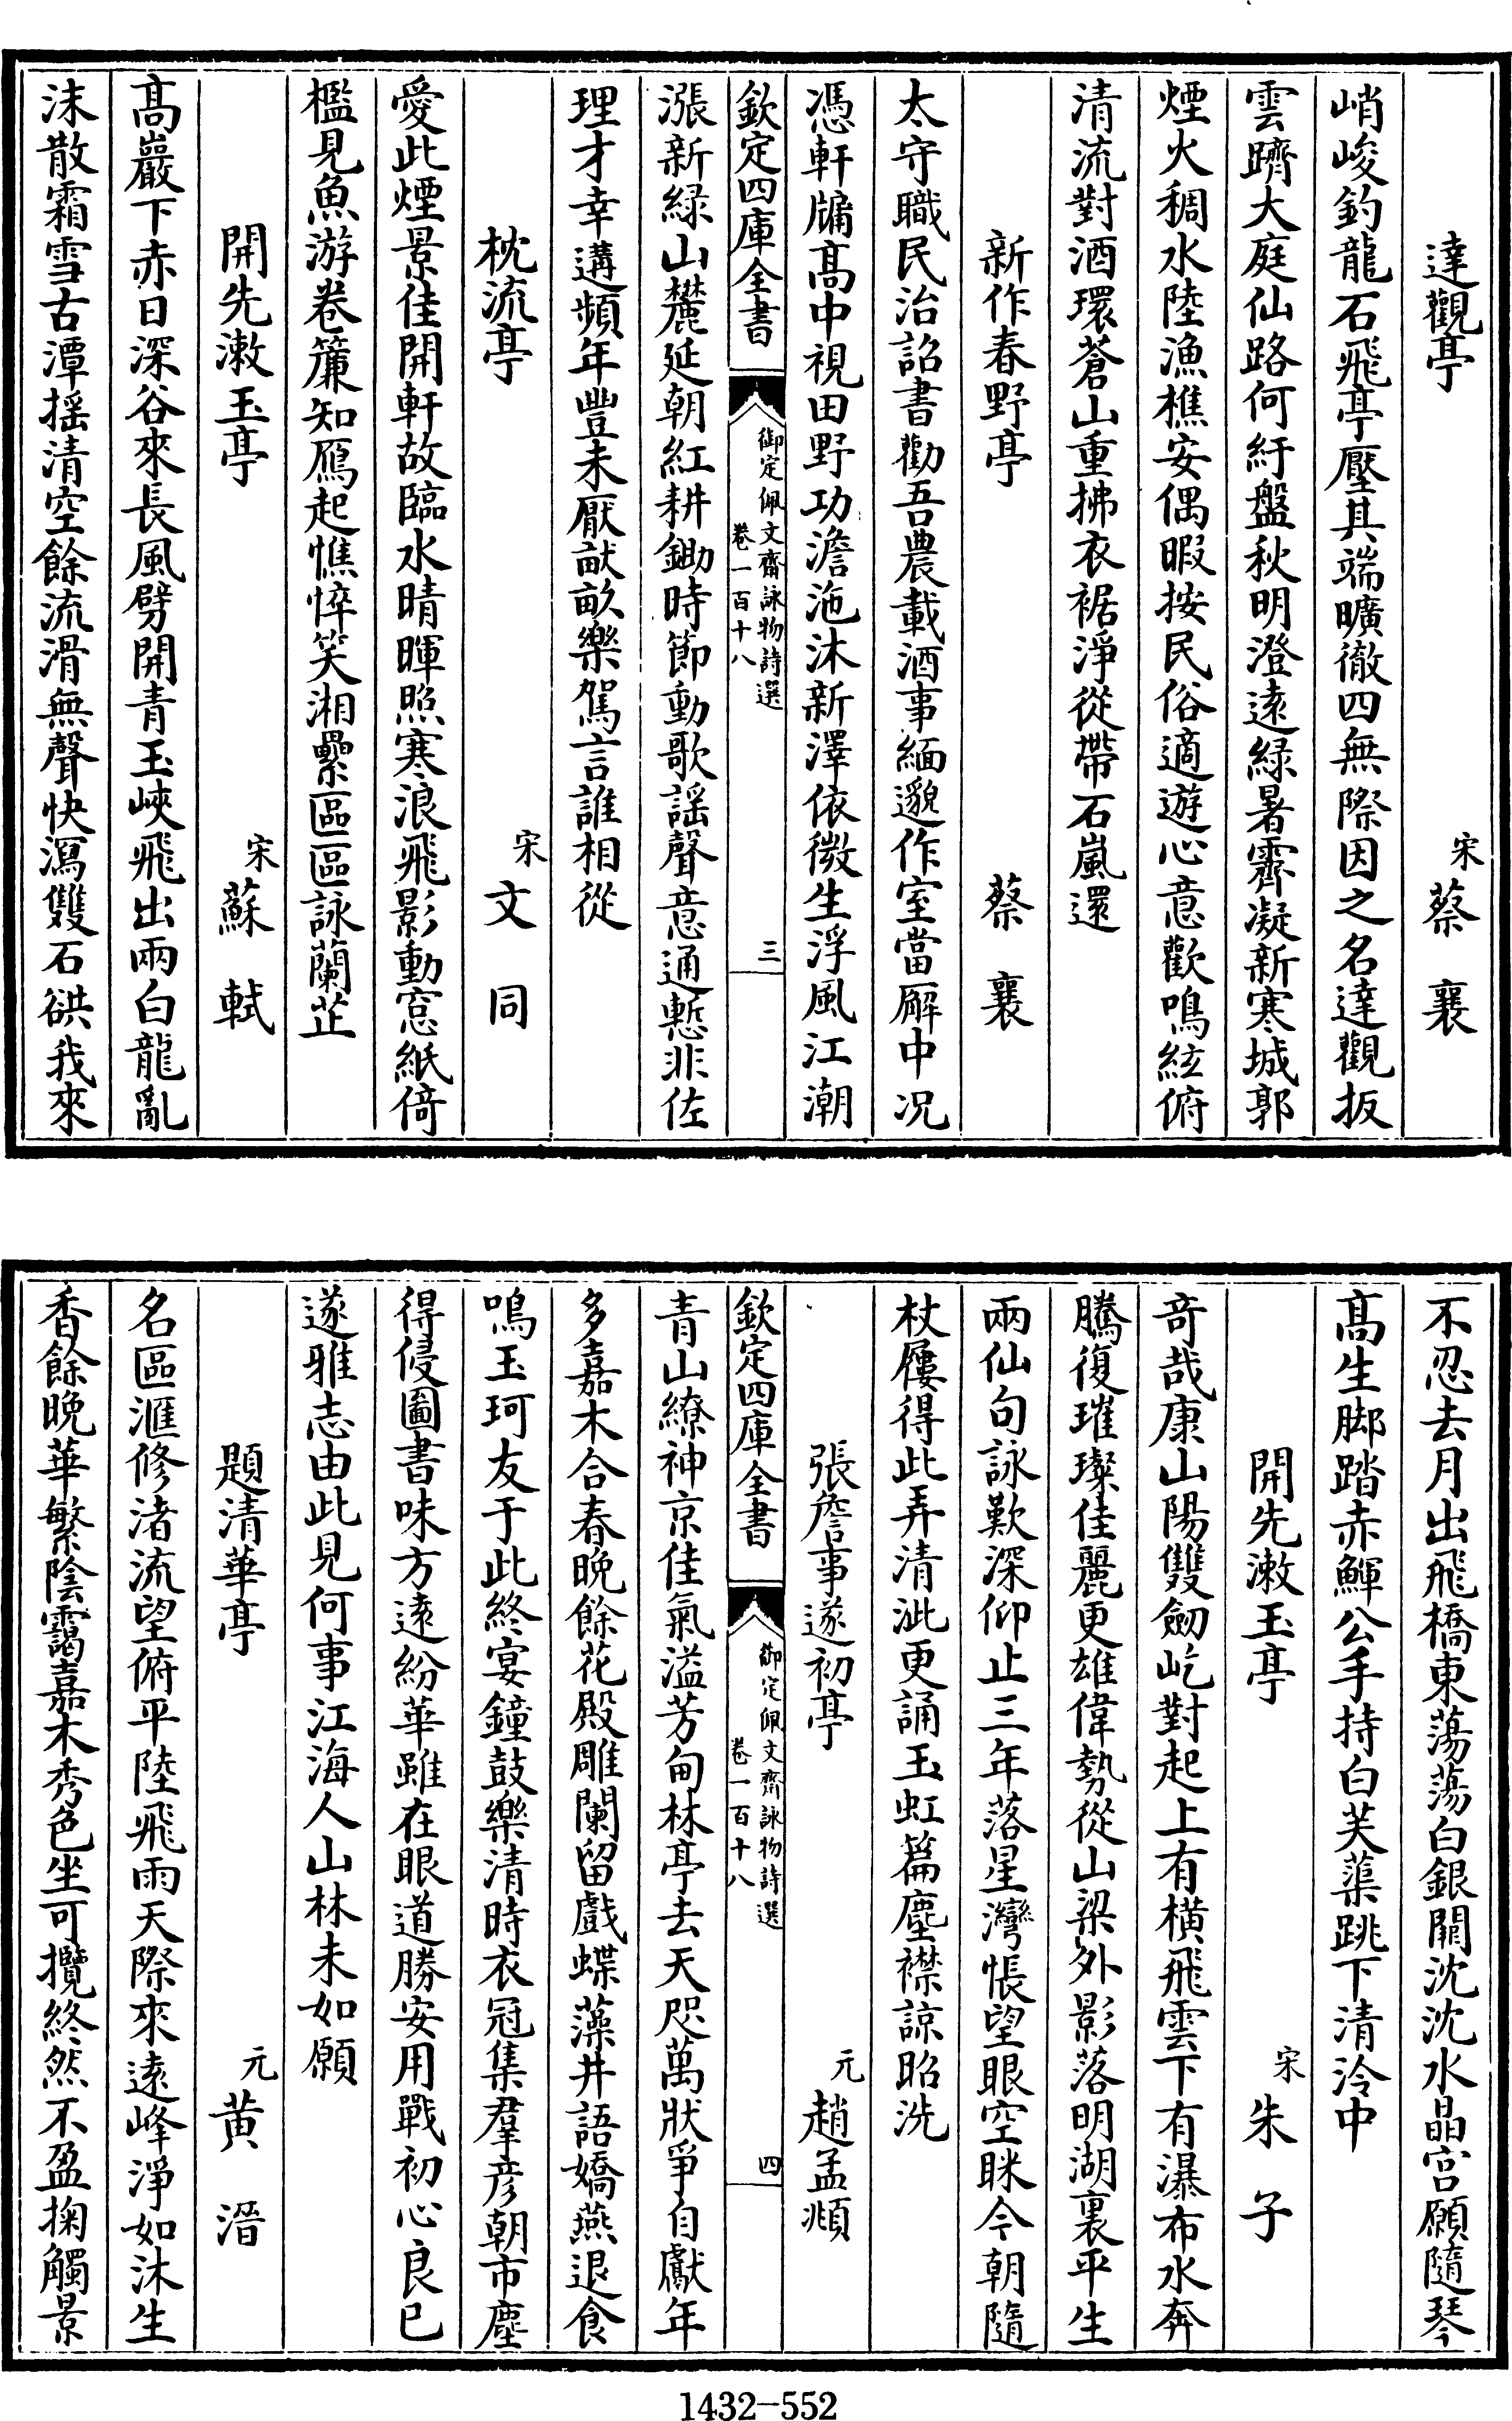 達觀亭　宋蔡襄
峭峻釣龍石飛亭壓其端曠徹四無際因之名達觀扳
雲躋大庭仙路何紆盤秋明澄遠綠暑霽凝新寒城郭
煙火稠水陸漁樵安偶暇按民俗適遊心意歡鳴絃俯
清流對酒環蒼山重拂衣裾淨從帶石嵐還
新作春野亭　蔡襄
太守職民治詔書勸吾農載酒事緬邈作室當廨中况
憑軒牖高中視田野功澹沲沐新澤依微生浮風江潮
欽定四庫全書　御定佩文齋詠物詩選　卷一百十八　三
漲新綠山麓延朝紅耕鋤時節動歌謡聲意通慙非佐
理才幸遘頻年豐未厭畎畝樂駕言誰相從
枕流亭　宋文同
愛此煙景佳開軒故臨水晴暉照寒浪飛影動窓紙倚
檻見魚游卷簾知鴈起憔悴笑湘纍區區詠蘭芷
開先漱玉亭　宋蘇軾
高巖下赤日深谷來長風劈開青玉峽飛出兩白龍亂
沫散霜雪古潭揺清空餘流滑無聲快瀉雙石谼我來
不忍去月出飛橋東蕩蕩白銀闕沈沈水晶宫願隨琴
高生脚踏赤鯶公手持白芙蕖跳下清泠中
開先漱玉亭　宋朱子
奇哉康山陽雙劒屹對起上有橫飛雲下有瀑布水奔
騰復璀璨佳麗更雄偉勢從山梁外影落明湖裏平生
兩仙句詠歎深仰止三年落星灣悵望眼空眯今朝隨
杖屨得此弄清泚更誦玉虹篇塵襟諒昭洗
張詹事遂初亭　元趙孟頫
欽定四庫全書　御定佩文齋詠物詩選　卷一百十八　四
青山繚神京佳氣溢芳甸林亭去天咫萬狀爭自獻年
多嘉木合春晚餘花殿雕闌留戲蝶藻井語嬌燕退食
鳴玉珂友于此終宴鐘鼓樂清時衣冠集羣彦朝市塵
得侵圖書味方遠紛華雖在眼道勝安用戰初心良已
遂雅志由此見何事江海人山林未如願
題清華亭　元黄溍
名區滙修渚流望俯平陸飛雨天際來遠峰淨如沐生
香餘晩華繁陰靄嘉木秀色坐可攬終然不盈掬觸景
1432-552